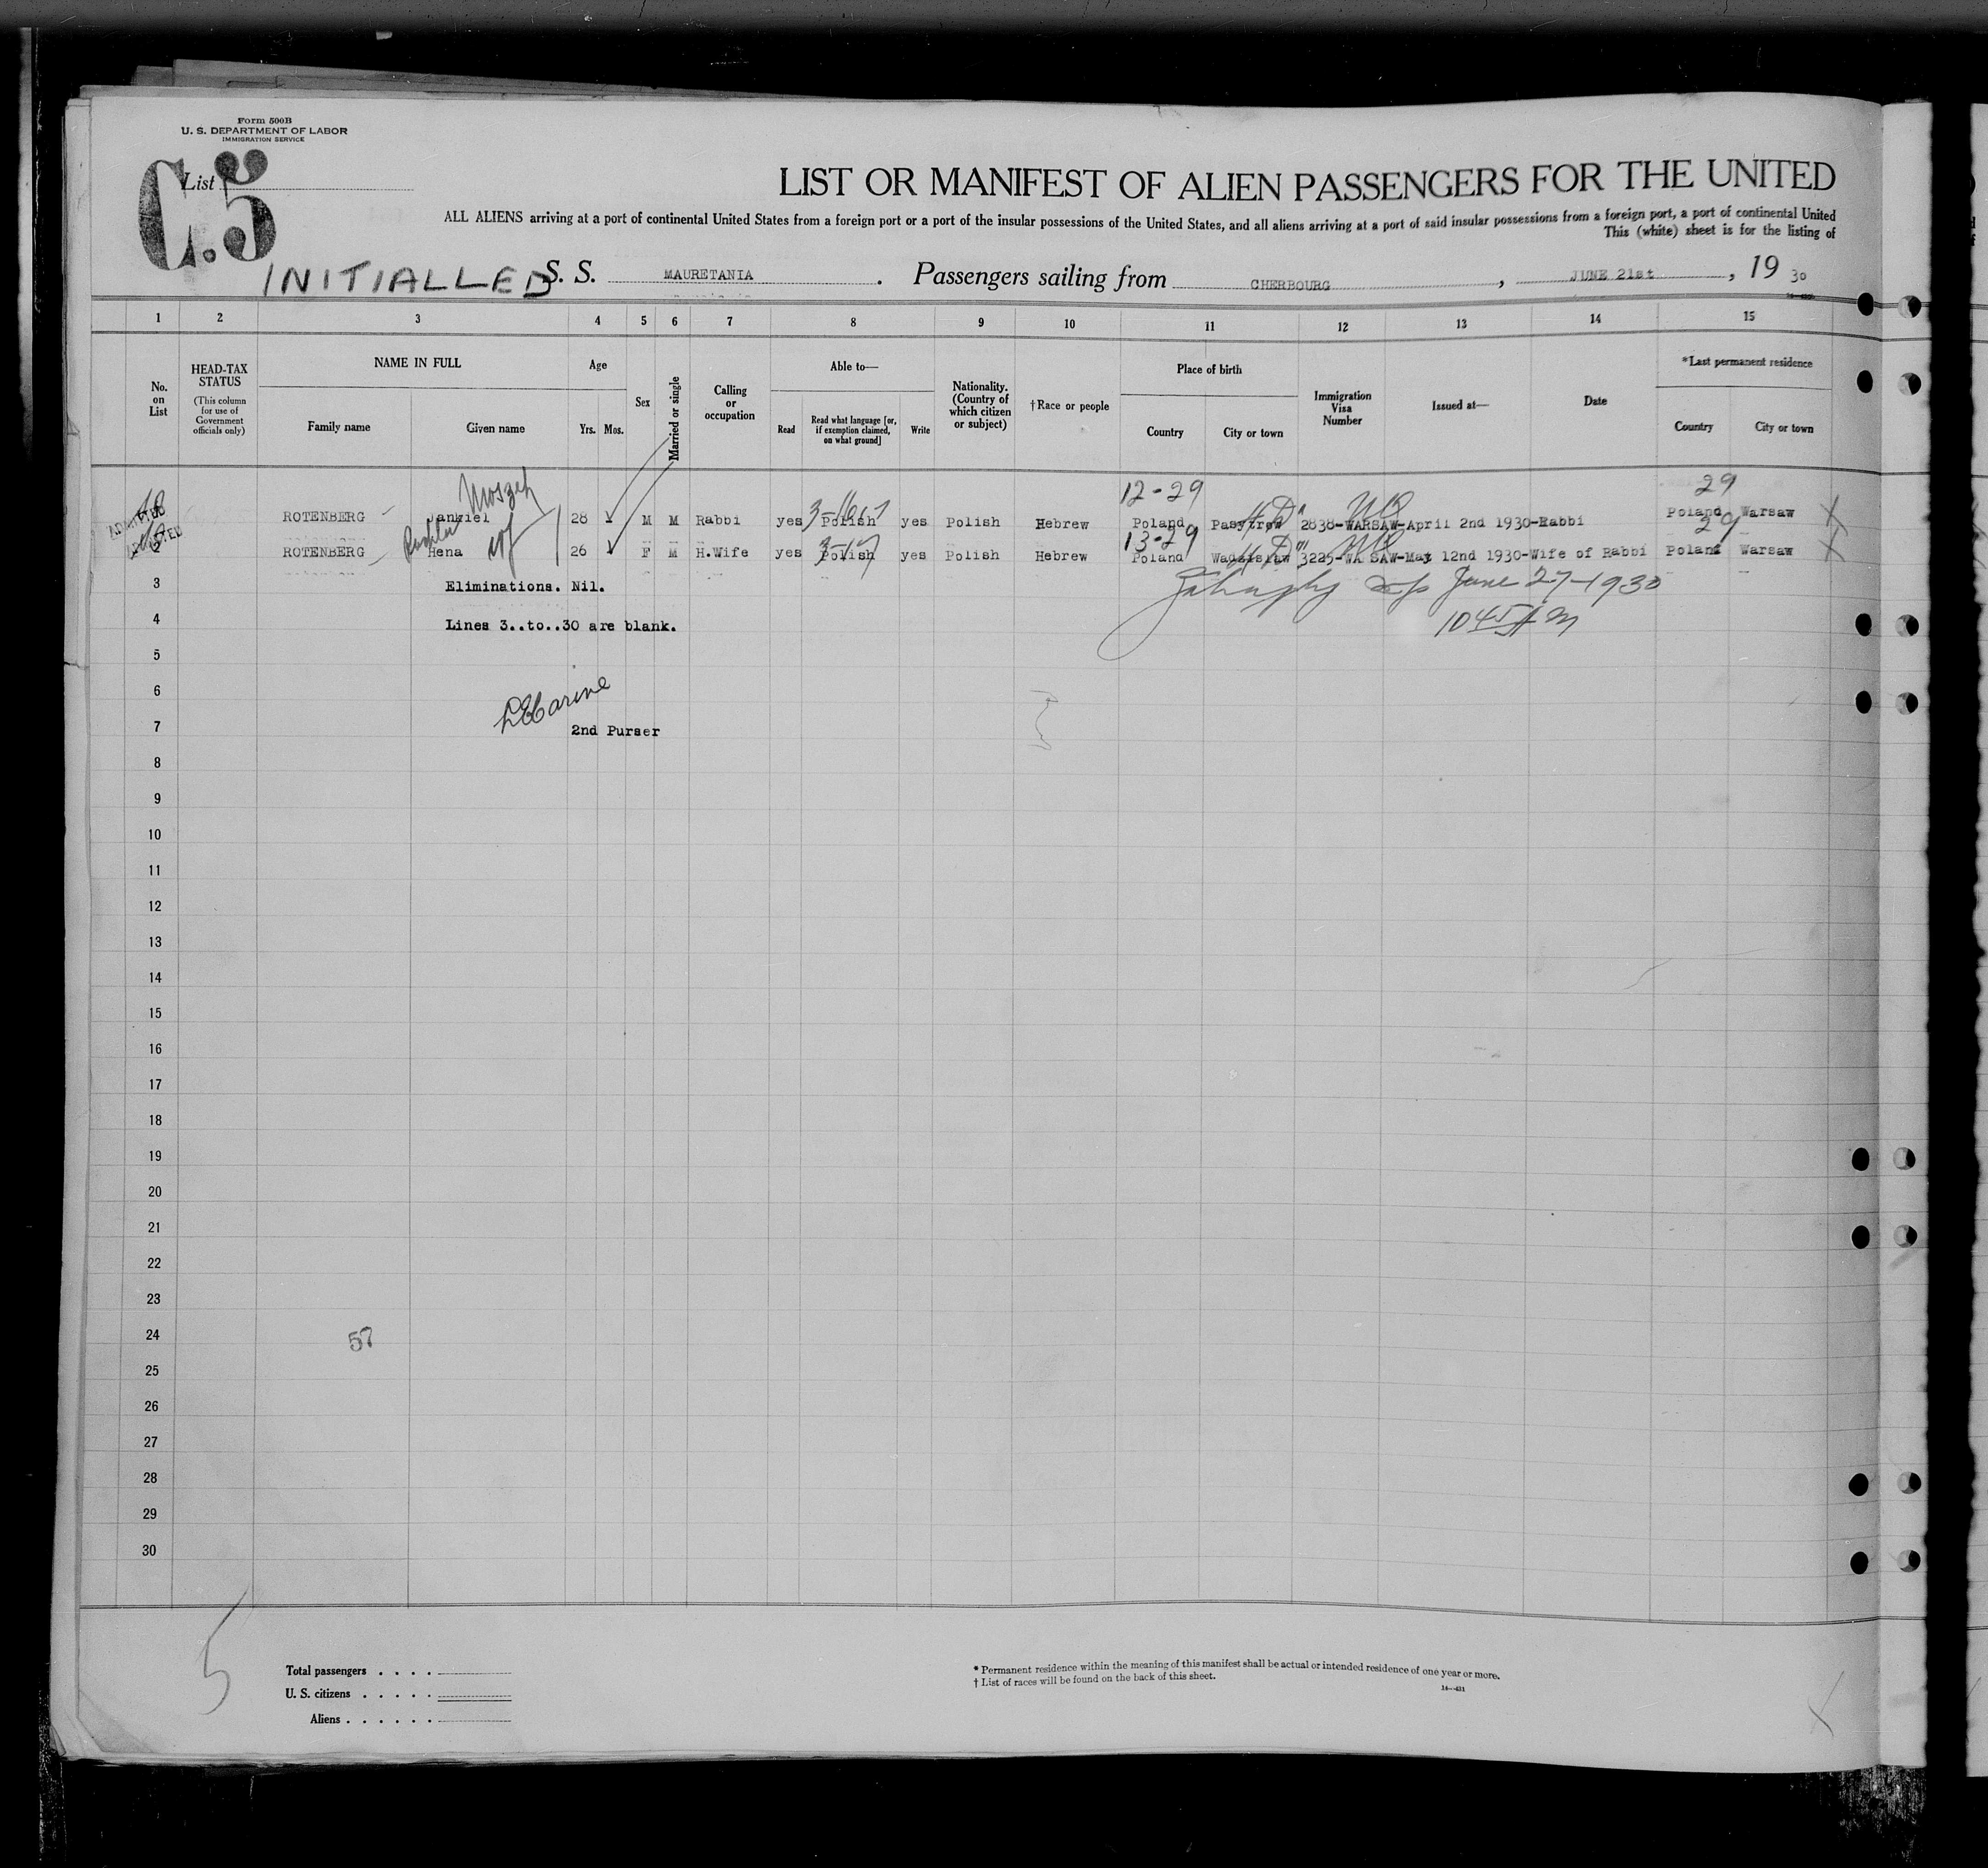 Form 500B
U. S. DEPARTMENT OF LABOR
IMMIGRATION SERVICE
List C.5
LIST OR MANIFEST OF ALIEN PASSENGERS FOR THE UNITED
ALL ALIENS arriving at a port of continental United States from a foreign port or a port of the insular possessions of the United States, and all aliens arriving at a port of said insular possessions from a foreign port, a port of continental United
This (white) sheet is for the listing of
INITIALLED S. S. MAURETANIA. Passengers sailing from CHERBOURG, JUNE 21st, 19 30
1 2 3 4 5 6 7 8 9 10 11 12 13 14 15
No. on List
HEAD-TAX STATUS (This column for use of Government officials only)
NAME IN FULL
Family name Given name
Age
Yrs. Mos.
Sex
Married or single
Calling or occupation
Able to—
Read Read what language [or, if exemption claimed, on what ground] Write
Nationality. (Country of which citizen or subject)
†Race or people
Place of birth
Country City or town
Immigration Visa Number
Issued at—
Date
*Last permanent residence
Country City or town
Moszek 12-29 29
ADMITTED ROTENBERG Jankiel 28 M M Rabbi yes Polish yes Polish Hebrew Poland 2838-WARSAW-April 2nd 1930-Rabbi Poland Warsaw
wf 13-29 29
2 ROTENBERG Hena 26 F M H.Wife yes Polish yes Polish Hebrew Poland 3225-WA SAW-May 12nd 1930-Wife of Rabbi Poland Warsaw
3 Eliminations. Nil. June 27-1930
4 Lines 3..to..30 are blank. 1045 AM
5
6
7 2nd Purser
8
9
10
11
12
13
14
15
16
17
18
19
20
21
22
23
24 57
25
26
27
28
29
30
5
Total passengers . . . .
U. S. citizens . . . . .
Aliens . . . . . .
* Permanent residence within the meaning of this manifest shall be actual or intended residence of one year or more.
† List of races will be found on the back of this sheet.
14—431